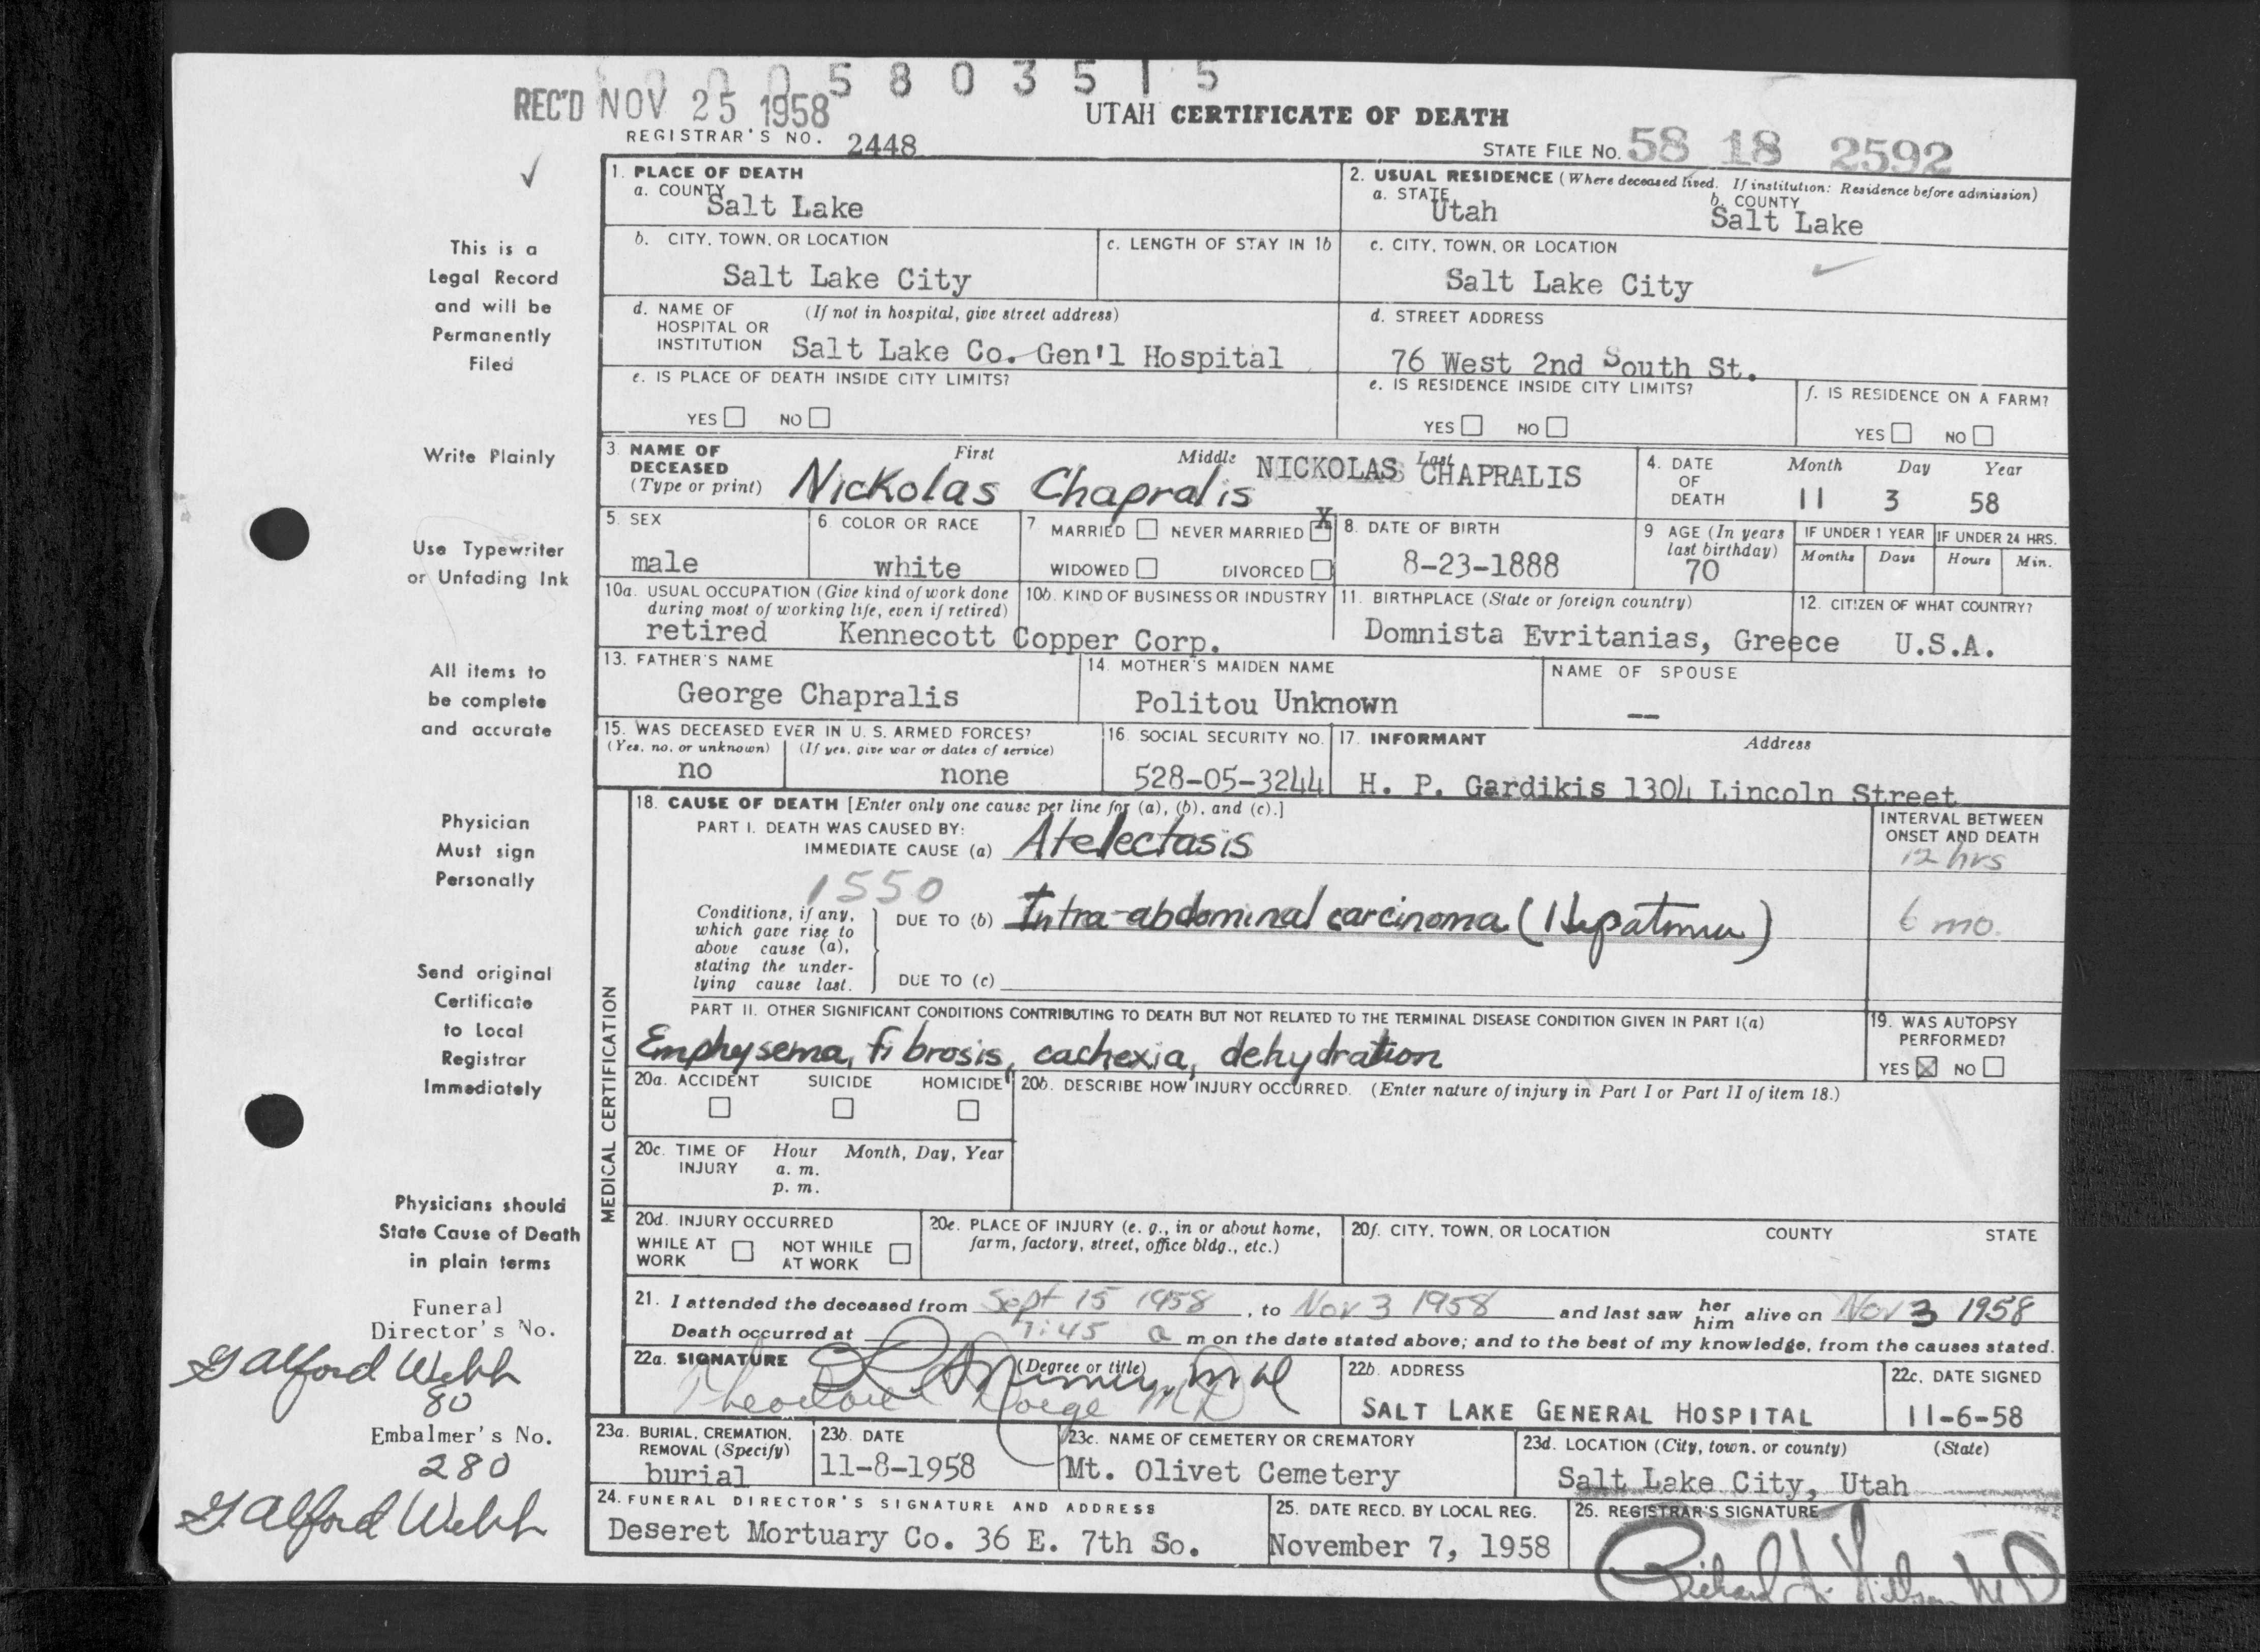 0 0 0 5 8 0 3 5 1 5
REC'D NOV 25 1958
UTAH CERTIFICATE OF DEATH
REGISTRAR'S NO. 2448
STATE FILE NO. 58 18 2592
1. PLACE OF DEATH
a. COUNTY Salt Lake
2. USUAL RESIDENCE (Where deceased lived. If institution: Residence before admission)
a. STATE Utah b. COUNTY Salt Lake
b. CITY, TOWN, OR LOCATION Salt Lake City
c. LENGTH OF STAY IN 1b
c. CITY, TOWN, OR LOCATION Salt Lake City
d. NAME OF HOSPITAL OR INSTITUTION (If not in hospital, give street address) Salt Lake Co. Gen'l Hospital
d. STREET ADDRESS 76 West 2nd South St.
e. IS PLACE OF DEATH INSIDE CITY LIMITS?
YES NO
e. IS RESIDENCE INSIDE CITY LIMITS?
YES NO
f. IS RESIDENCE ON A FARM?
YES NO
3. NAME OF DECEASED (Type or print) First Middle Last
Nickolas Chapralis NICKOLAS CHAPRALIS
4. DATE OF DEATH Month Day Year
11 3 58
5. SEX male
6. COLOR OR RACE white
7. MARRIED NEVER MARRIED X
WIDOWED DIVORCED
8. DATE OF BIRTH 8-23-1888
9. AGE (In years last birthday) 70
IF UNDER 1 YEAR Months Days
IF UNDER 24 HRS. Hours Min.
10a. USUAL OCCUPATION (Give kind of work done during most of working life, even if retired) retired
10b. KIND OF BUSINESS OR INDUSTRY Kennecott Copper Corp.
11. BIRTHPLACE (State or foreign country) Domnista Evritanias, Greece
12. CITIZEN OF WHAT COUNTRY? U.S.A.
13. FATHER'S NAME George Chapralis
14. MOTHER'S MAIDEN NAME Politou Unknown
NAME OF SPOUSE --
15. WAS DECEASED EVER IN U. S. ARMED FORCES?
(Yes, no, or unknown) no
(If yes, give war or dates of service) none
16. SOCIAL SECURITY NO. 528-05-3244
17. INFORMANT Address
H. P. Gardikis 1304 Lincoln Street
MEDICAL CERTIFICATION
18. CAUSE OF DEATH [Enter only one cause per line for (a), (b), and (c).]
PART I. DEATH WAS CAUSED BY:
IMMEDIATE CAUSE (a) Atelectasis
INTERVAL BETWEEN ONSET AND DEATH
12 hrs
1550
Conditions, if any, which gave rise to above cause (a), stating the underlying cause last.
DUE TO (b) Intra-abdominal carcinoma (Hepatoma)
6 mo.
DUE TO (c)
PART II. OTHER SIGNIFICANT CONDITIONS CONTRIBUTING TO DEATH BUT NOT RELATED TO THE TERMINAL DISEASE CONDITION GIVEN IN PART I(a)
Emphysema, fibrosis, cachexia, dehydration
19. WAS AUTOPSY PERFORMED?
YES X NO
20a. ACCIDENT SUICIDE HOMICIDE
20b. DESCRIBE HOW INJURY OCCURRED. (Enter nature of injury in Part I or Part II of item 18.)
20c. TIME OF INJURY Hour a. m. p. m. Month, Day, Year
20d. INJURY OCCURRED
WHILE AT WORK NOT WHILE AT WORK
20e. PLACE OF INJURY (e. g., in or about home, farm, factory, street, office bldg., etc.)
20f. CITY, TOWN, OR LOCATION COUNTY STATE
21. I attended the deceased from Sept 15 1958, to Nov 3 1958 and last saw her him alive on Nov 3 1958
Death occurred at 7:45 a m on the date stated above; and to the best of my knowledge, from the causes stated.
22a. SIGNATURE (Degree or title)
Theodore MD
22b. ADDRESS SALT LAKE GENERAL HOSPITAL
22c. DATE SIGNED 11-6-58
23a. BURIAL, CREMATION, REMOVAL (Specify) burial
23b. DATE 11-8-1958
23c. NAME OF CEMETERY OR CREMATORY Mt. Olivet Cemetery
23d. LOCATION (City, town, or county) (State)
Salt Lake City, Utah
24. FUNERAL DIRECTOR'S SIGNATURE AND ADDRESS
Deseret Mortuary Co. 36 E. 7th So.
25. DATE RECD. BY LOCAL REG.
November 7, 1958
26. REGISTRAR'S SIGNATURE
Richard
This is a
Legal Record
and will be
Permanently
Filed
Write Plainly
Use Typewriter
or Unfading Ink
All items to
be complete
and accurate
Physician
Must sign
Personally
Send original
Certificate
to Local
Registrar
Immediately
Physicians should
State Cause of Death
in plain terms
Funeral
Director's No.
G Alford Webb
80
Embalmer's No.
280
G Alford Webb